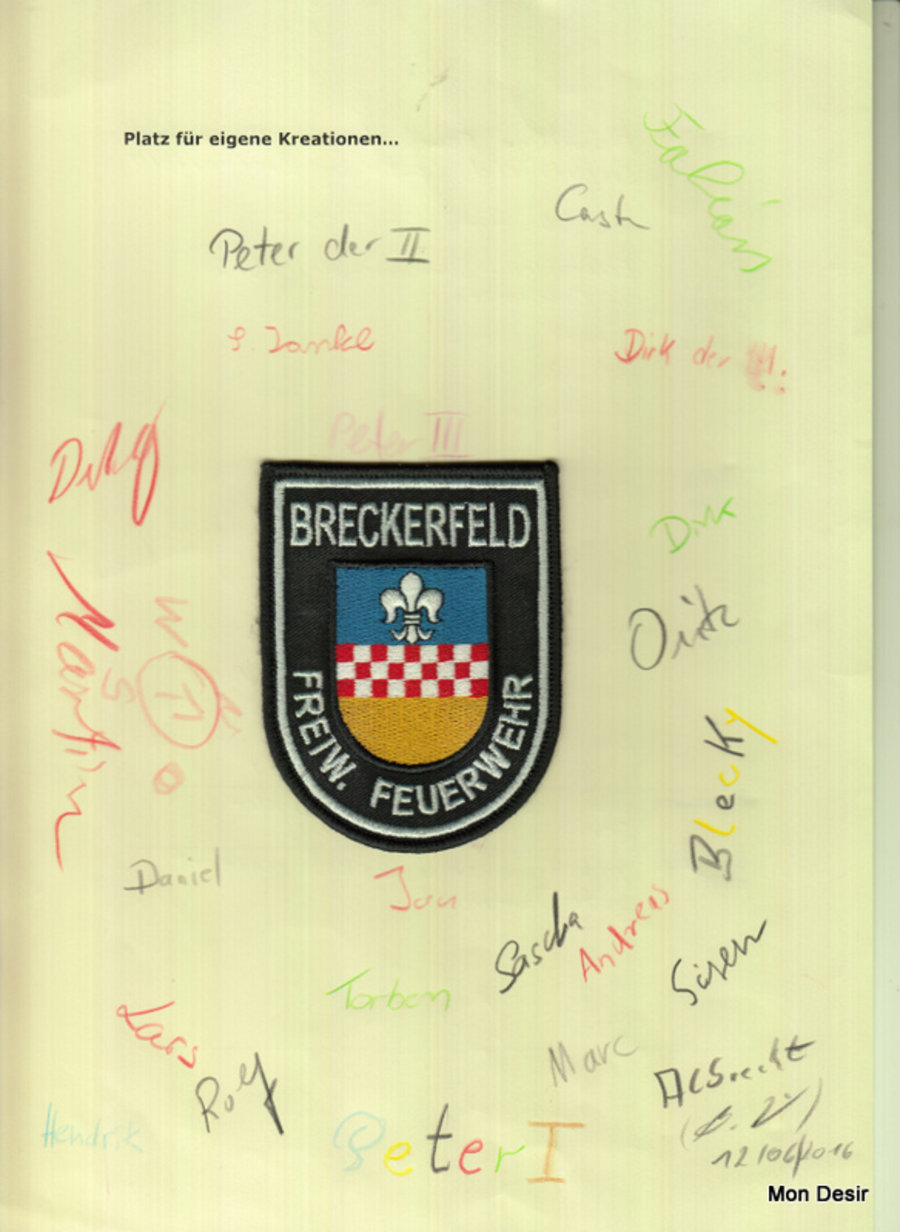 Platz für eigene Kreationen...
Fabian
Peter der II
Dirk der
Peter III
BRECKERFELD
FREIW. FEUERWEHR
Dirk
Martin
Blecky
Daniel
Jan
Sascha
Andreas
Sören
Torben
Lars
Rolf
Marc
Albrecht
Hendrik
Peter I
12/06/2016
Mon Desir